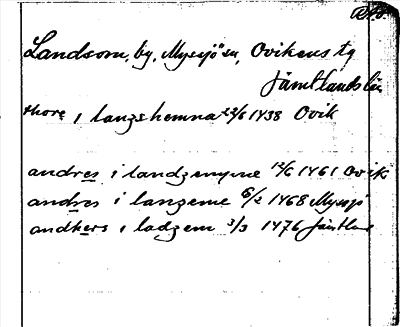 Landsom, by, Myssjö sn, Ovikens tg
Jämtlands län
thore i langshemna 22/6 1438 Ovik
andres i landzenyme 12/6 1461 Ovik
andres i langeme 6/2 1468 Myssjö
andhers i ladzem 3/3 1476 Jämtland